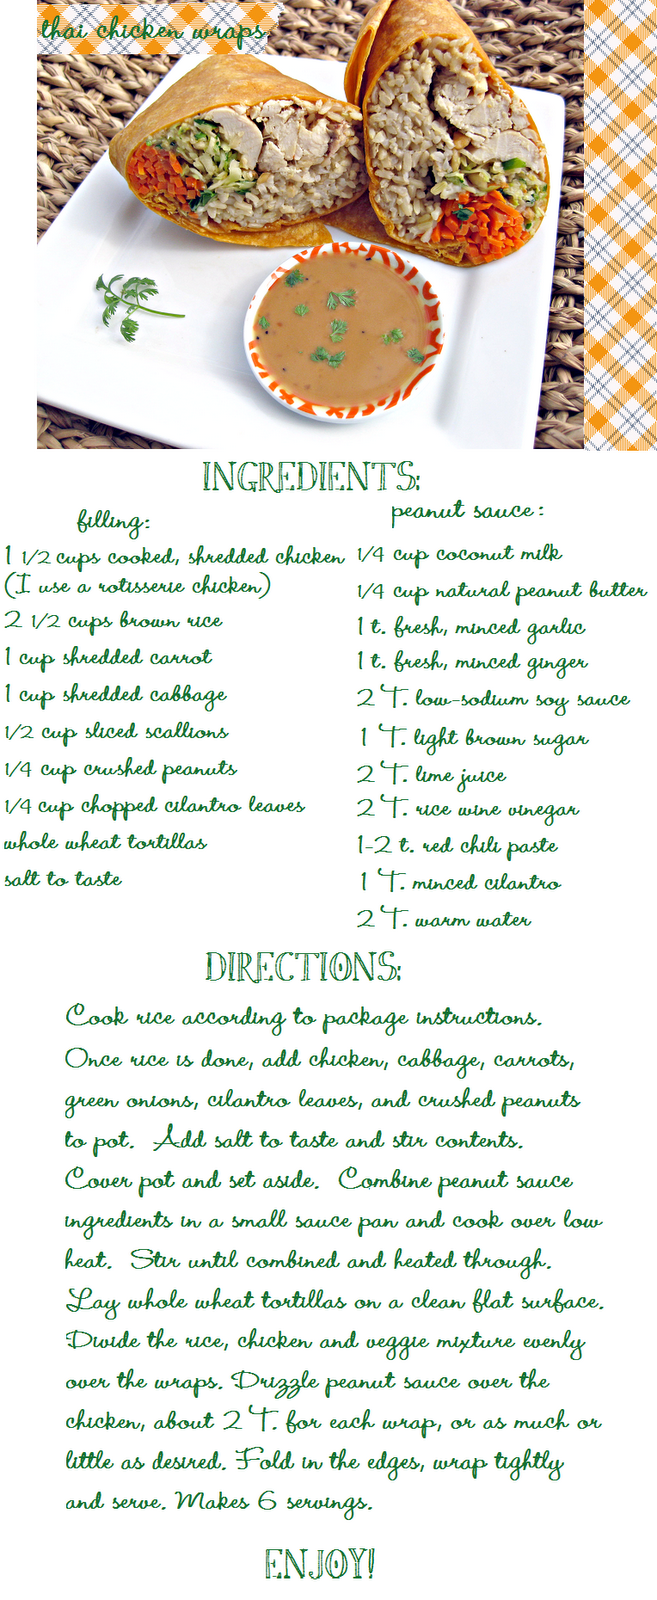 thai chicken wraps
INGREDIENTS:
filling:
1 1/2 cups cooked, shredded chicken
(I use a rotisserie chicken)
2 1/2 cups brown rice
1 cup shredded carrot
1 cup shredded cabbage
1/2 cup sliced scallions
1/4 cup crushed peanuts
1/4 cup chopped cilantro leaves
whole wheat tortillas
salt to taste
peanut sauce:
1/4 cup coconut milk
1/4 cup natural peanut butter
1 t. fresh, minced garlic
1 t. fresh, minced ginger
2 T. low-sodium soy sauce
1 T. light brown sugar
2 T. lime juice
2 T. rice wine vinegar
1-2 t. red chili paste
1 T. minced cilantro
2 T. warm water
DIRECTIONS:
Cook rice according to package instructions.
Once rice is done, add chicken, cabbage, carrots,
green onions, cilantro leaves, and crushed peanuts
to pot. Add salt to taste and stir contents.
Cover pot and set aside. Combine peanut sauce
ingredients in a small sauce pan and cook over low
heat. Stir until combined and heated through.
Lay whole wheat tortillas on a clean flat surface.
Divide the rice, chicken and veggie mixture evenly
over the wraps. Drizzle peanut sauce over the
chicken, about 2 T. for each wrap, or as much or
little as desired. Fold in the edges, wrap tightly
and serve. Makes 6 servings.
ENJOY!